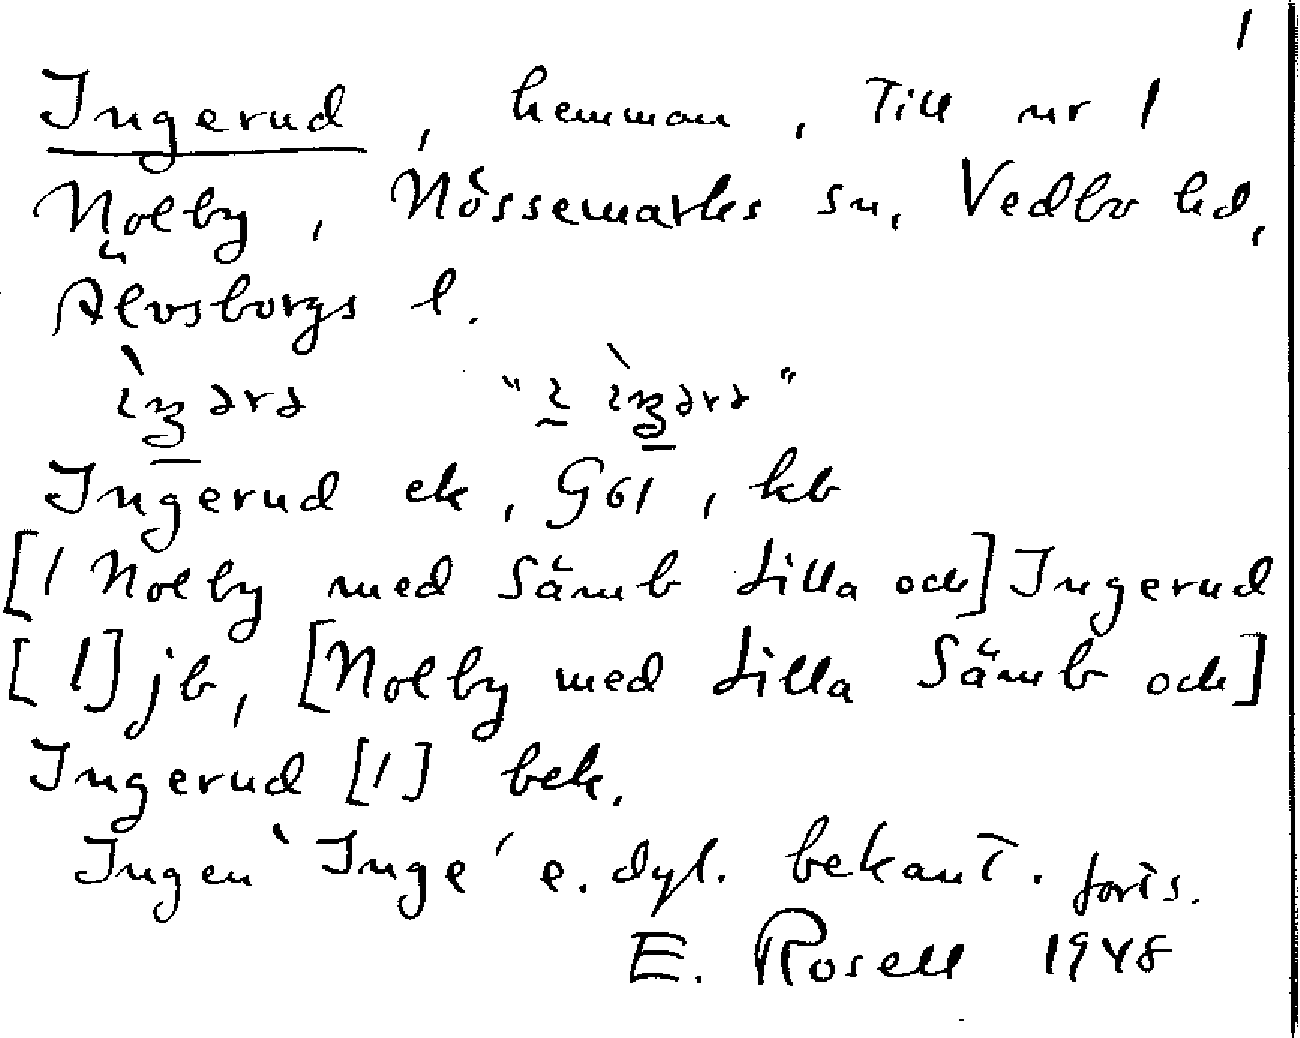 1
Ingerud, hemman, Till nr 1
Nolby, Nössemarks sn, Vedbo hd,
Älvsborgs l.
Ingerud ek, G61, kb
[1 Nolby med Sämb Lilla och] Ingerud
[1] jb, [Nolby med Lilla Sämb och]
Ingerud [1] bek.
Ingen 'Inge' e. dyl. bekant. forts.
E. Rosell 1948